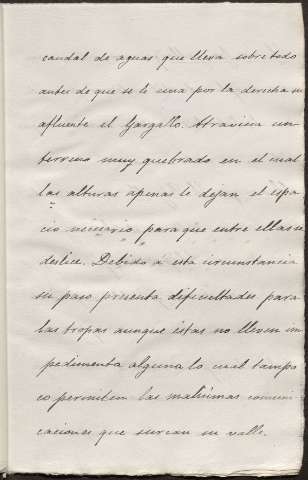 caudal de aguas que lleva sobre todo
antes de que se le una por la derecha su
afluente el Gargallo. Atraviesa un
terreno muy quebrado en el cual
las alturas apenas le dejan el espa
cio necesario para que entre ellas se
deslice. Debido á esta circunstancia
su paso presenta dificultades para
las tropas aunque éstas no lleven im
pedimenta alguna lo cual tampo
co permiten las malísimas comuni
caciones que surcan su valle.